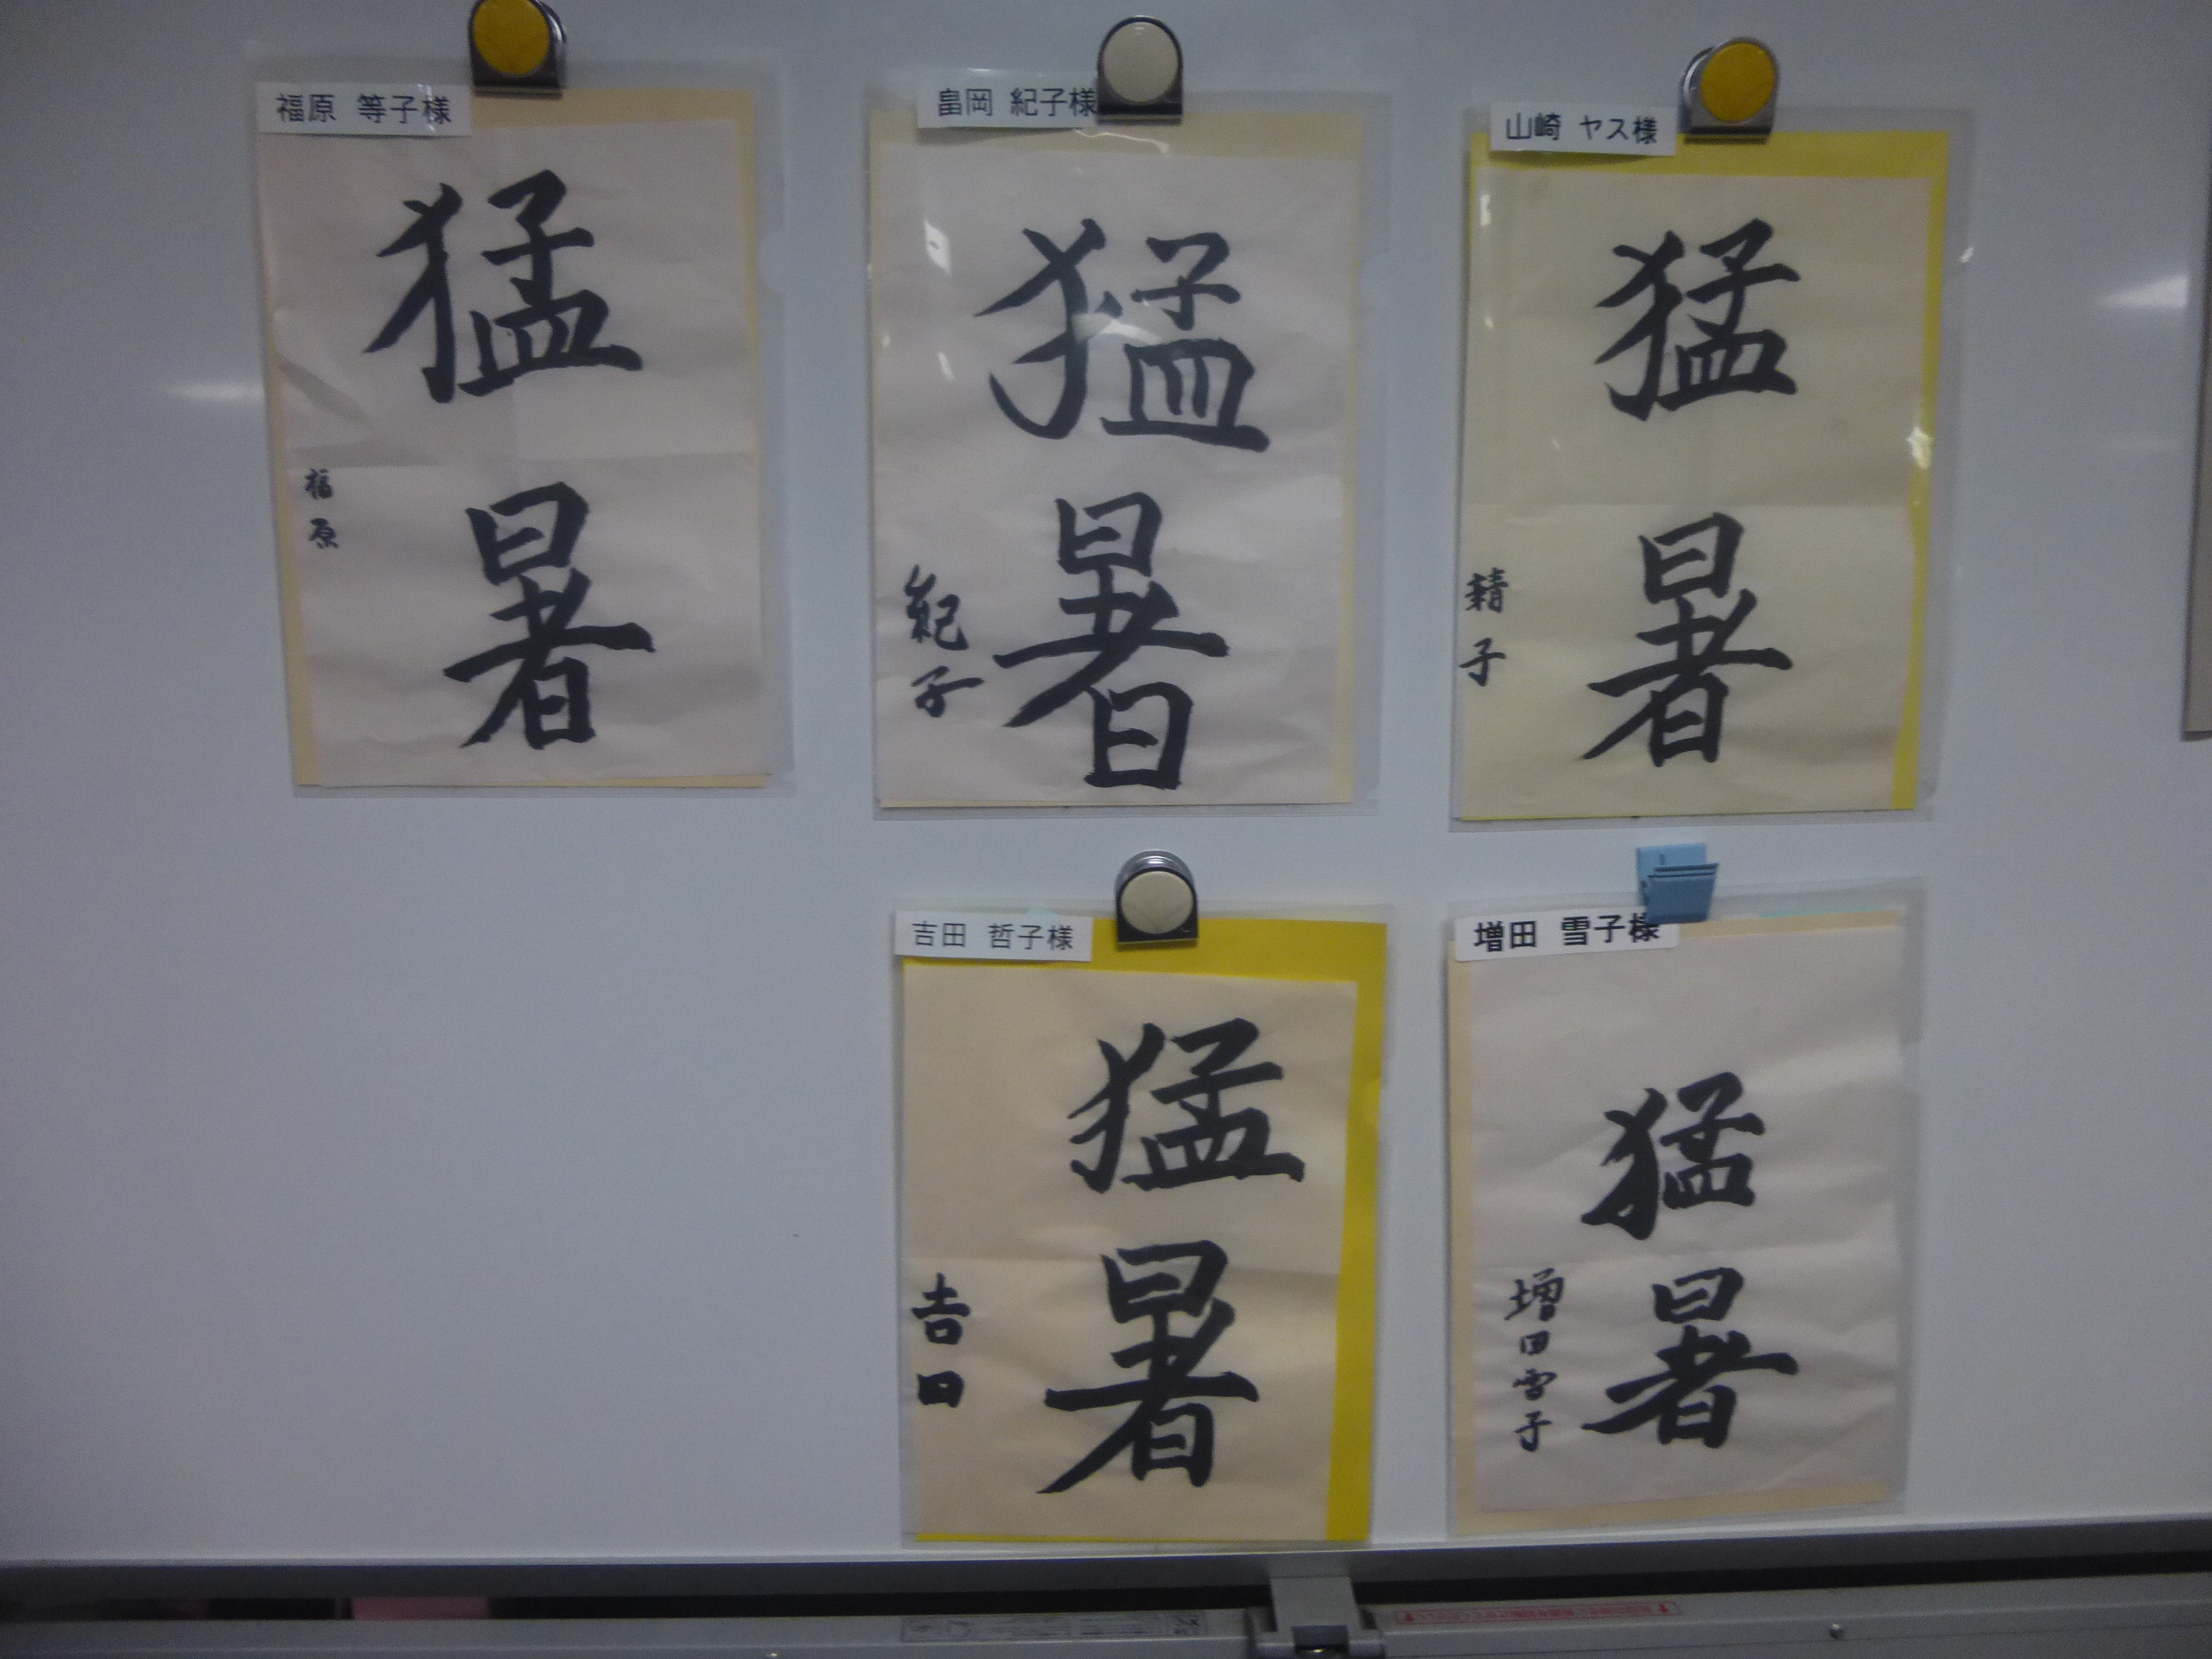 福原 等子様
猛暑
福原
畠岡 紀子様
猛暑
紀子
山崎 ヤス様
猛暑
子
吉田 哲子様
猛暑
吉田
増田 雪子様
猛暑
増田雪子